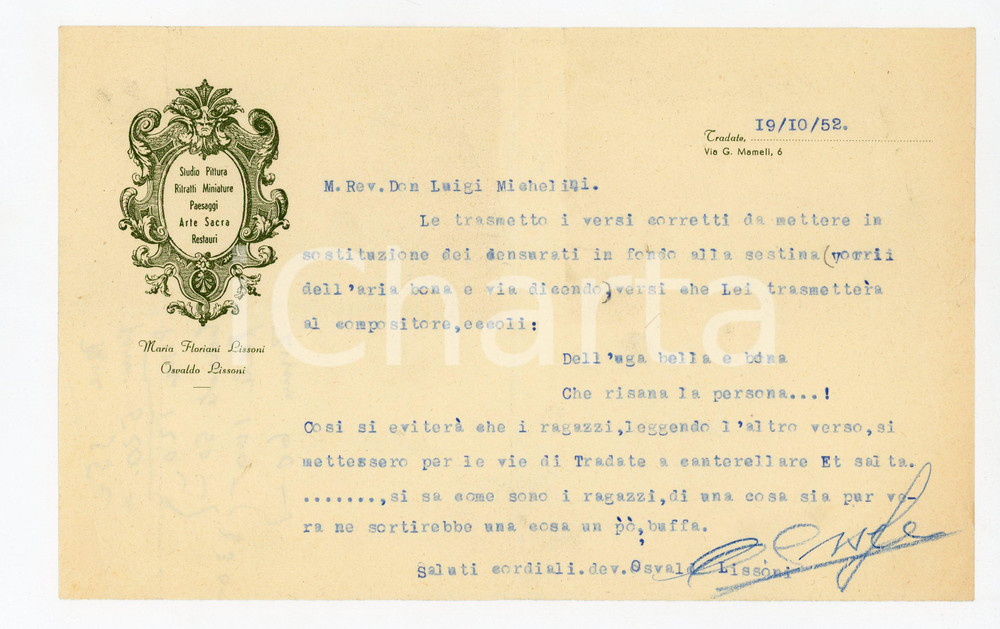 Studio Pittura
Ritratti Miniature
Paesaggi
Arte Sacra
Restauri
Maria Floriani Lissoni
Osvaldo Lissoni
Tradate, 19/10/52.
Via G. Mameli, 6
M.Rev.Don Luigi Michelini.
Le trasmetto i versi corretti da mettere in
sostituzione dei densurati in fondo alla sestina(vorrii
dell'aria bona e via dicendo)versi che Lei trasmetterà
al compositore,eccoli:
Dell'uga bella e bóna
Che risana la persona...!
Cosi si eviterà che i ragazzi,leggendo l'altro verso,si
mettessero per le vie di Tradate a canterellare Et salta.
.......,si sa come sono i ragazzi,di una cosa sia pur ve-
ra ne sortirebbe una cosa un pò,buffa.
Saluti cordiali.dev.Osvaldo Lissòni
iCharta